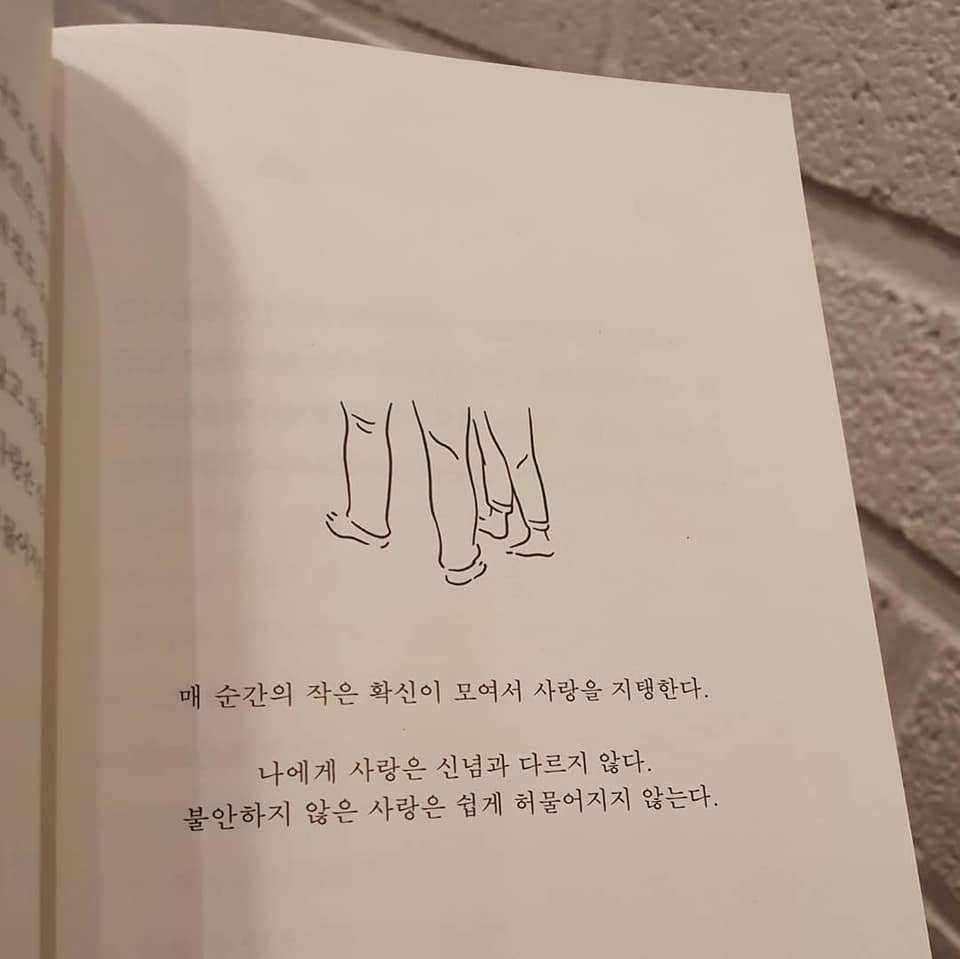 매 순간의 작은 확신이 모여서 사랑을 지탱한다.
나에게 사랑은 신념과 다르지 않다.
불안하지 않은 사랑은 쉽게 허물어지지 않는다.